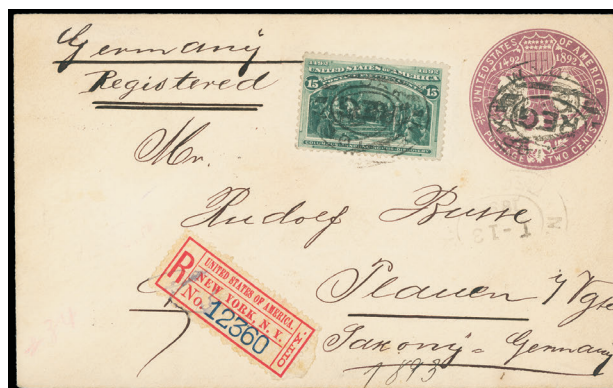 Germany
Registered
1492 1892
UNITED STATES OF AMERICA
15 15
UNITED STATES OF AMERICA
1492 1892
POSTAGE TWO CENTS
REG
Mr.
Rudolf Busse
Plauen i/Vgtl
Saxony - Germany
1893
R
UNITED STATES OF AMERICA.
NEW YORK, N. Y.
No. 12360